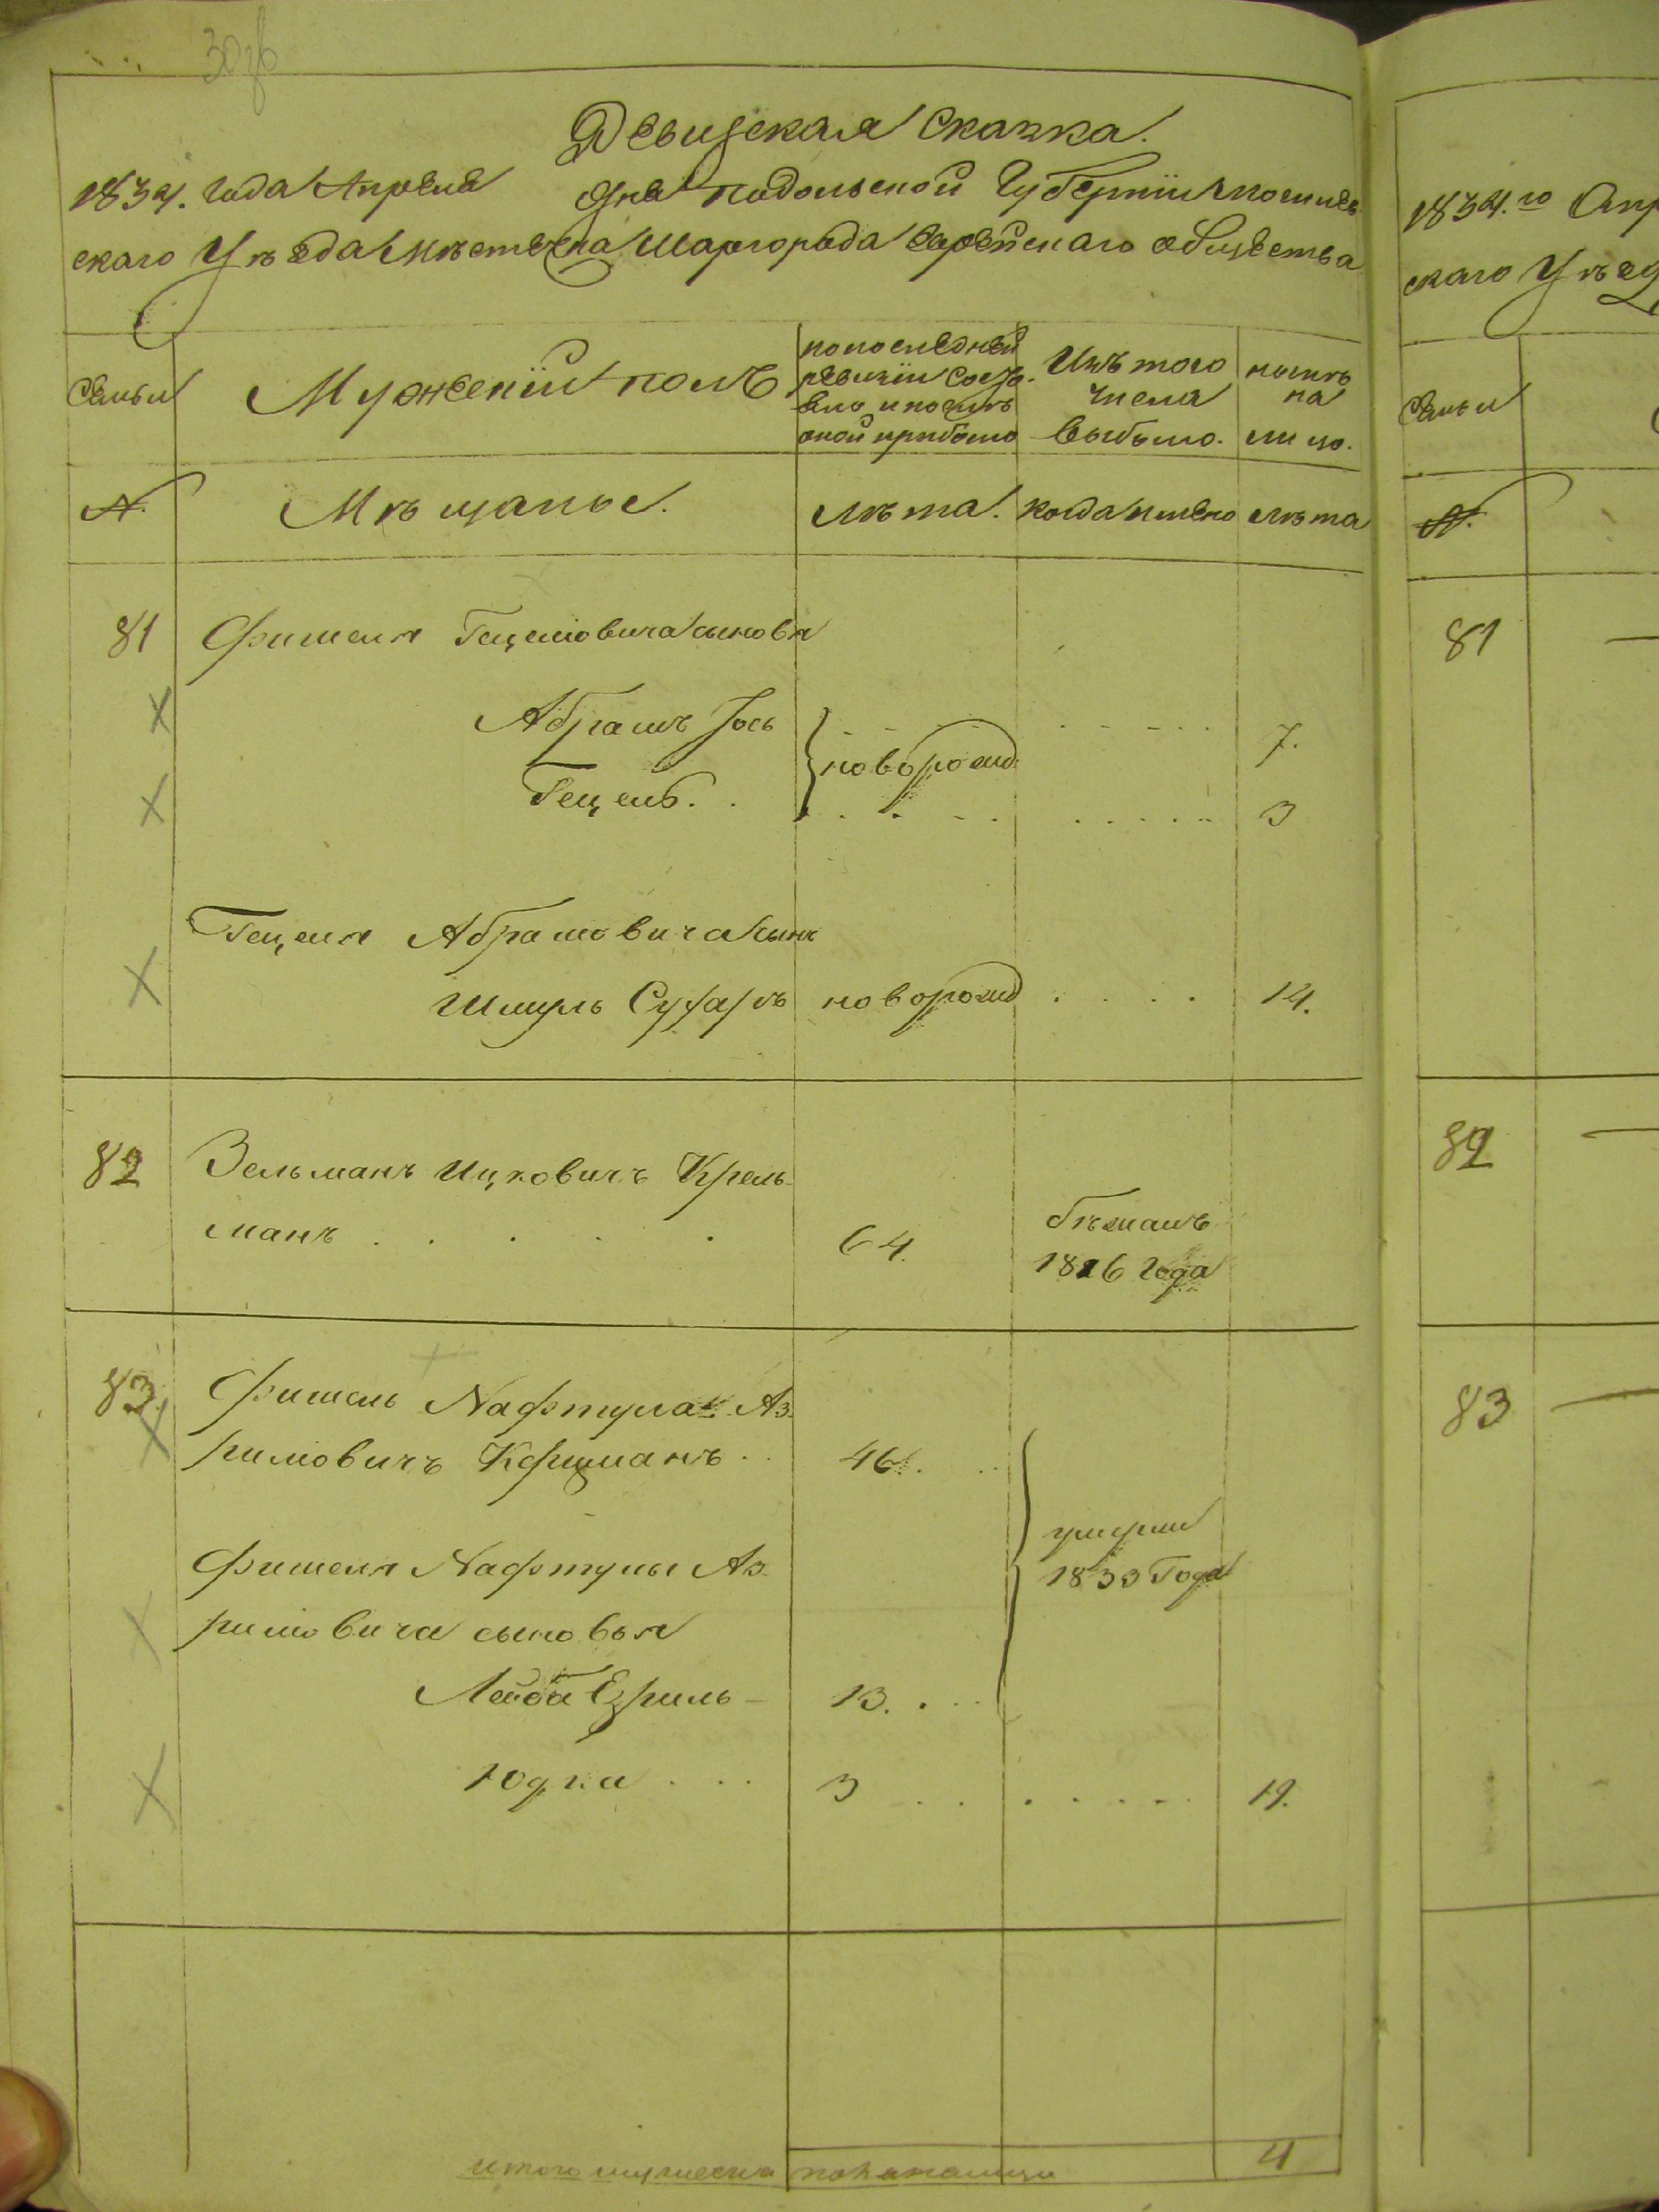 30 зв
Ревизская Сказка.
1834. Года Апреля дня подольской Губернии Могилев
скаго Уъезда Мъстечка Шаргорода Еврейского общества
Семьи
Мужеский полъ
по последней
ревизии состо-
яло и послъ
оной прибыло
Изъ того
числа
выбыло.
нынъ
на
лицо.
№.
Мъщаные.
лъта.
когда имено
лъта
81 Фишеля Гецеловича сыновя
Абрамъ Іось 7.
новорожд
Гецель. 3
Гецеля Абрамовича сынъ
Шмуль Сухаръ новорожд 14.
82 Зельманъ Ицковичъ Крель-
манъ 64. бъжалъ
1826 Года
83. Фишель Нафтула Аз-
риловичъ Коршманъ 46.
умерли
1833 Года
Фишеля Нафтулы Аз-
риловича сыновья
Лейба Езриль 13.
Юдка 3 19.
итого мужеска пола налицо 4
1834.го Апр
скаго Уъезд
Семьи
№.
81
82
83